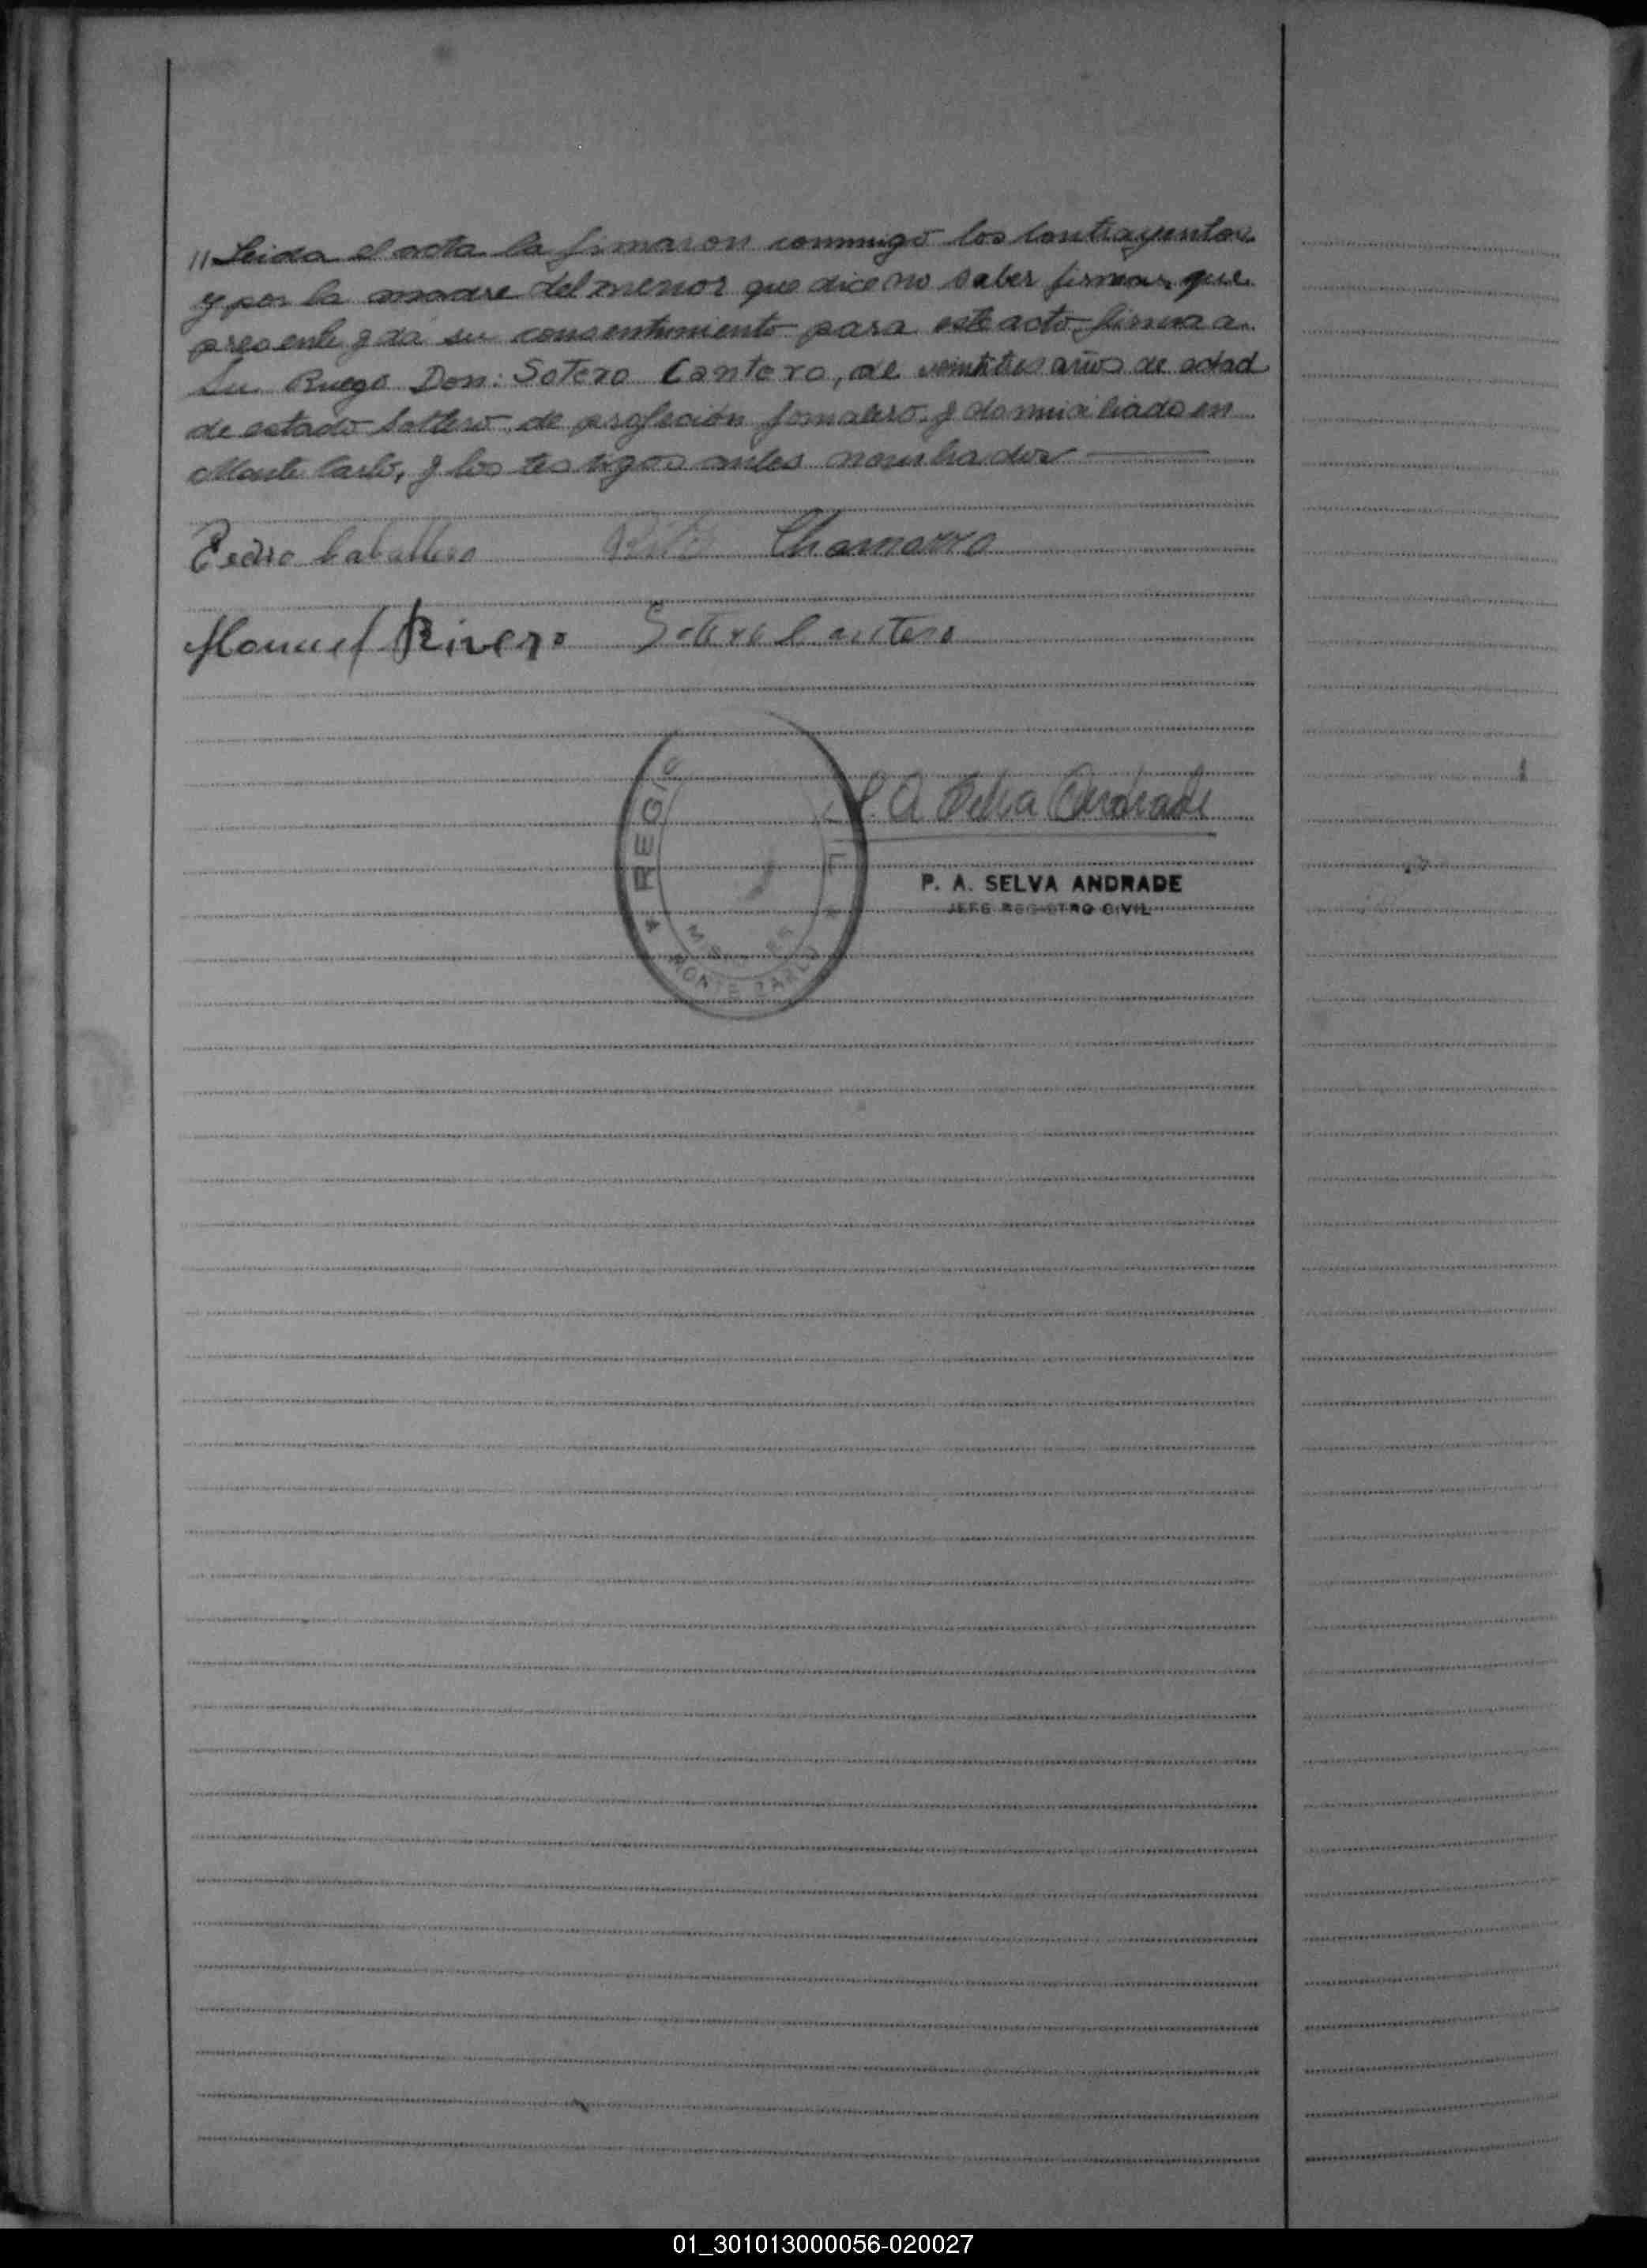 "Leida el acta la firmaron conmigo los Contrayentes
y por la madre del menor que dice no saber firmar, que
presente y da su consentimiento para este acto firma a
Su Ruego Don: Sotero Cantero, de veintitres años de edad
de estado Soltero de profeción Jornalero y domiciliado en
Monte Carlo, y los testigos antes nombrados
Pedro Caballero Chamorro
Manuel Rivero Sotero Cantero
P. A. Selva Andrade
P. A. SELVA ANDRADE
JEFE REGISTRO CIVIL
REGIS
MONTE CARLO
01_301013000056-020027